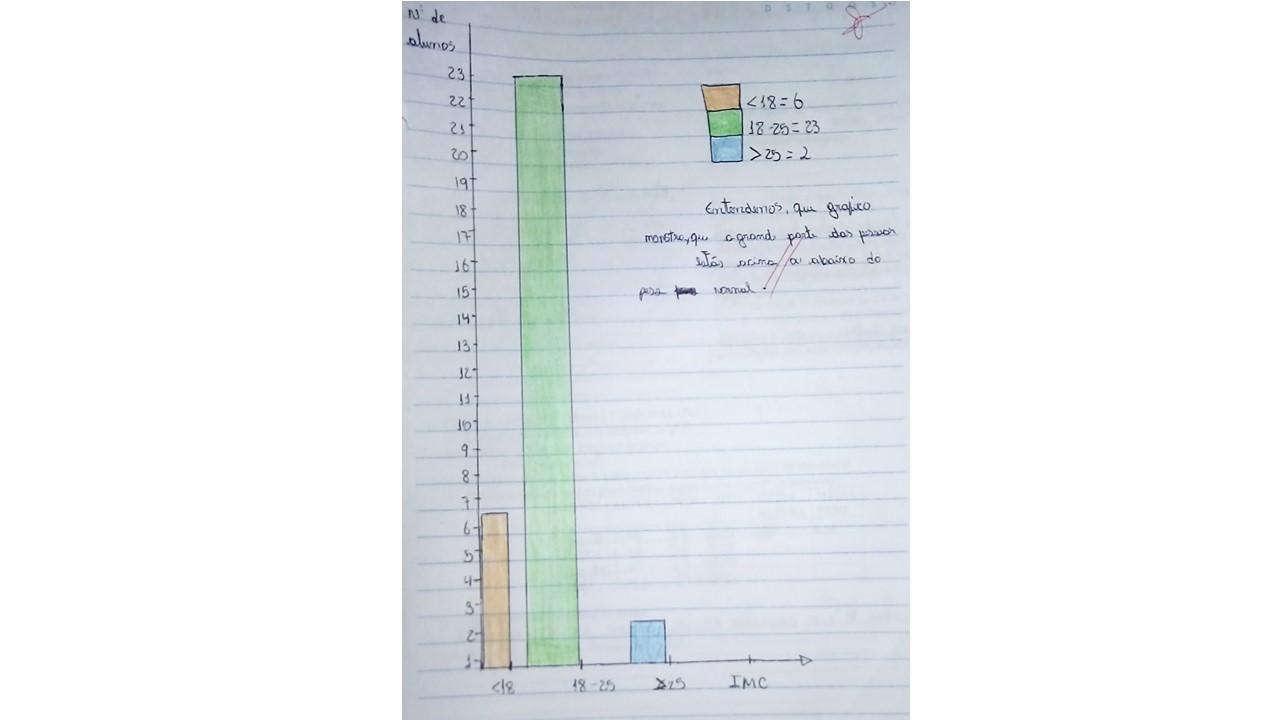 Nº de
alunos
23
22
21
20
19
18
17
16
15
14
13
12
11
10
9
8
7
6
5
4
3
2
1
<18
18-25
>25
IMC
D S T Q
<18=6
18-25=23
>25=2
Entendemos, que grafico
mostra, que a grand parte das pessoas
estás acima a abaixo do
peso normal.